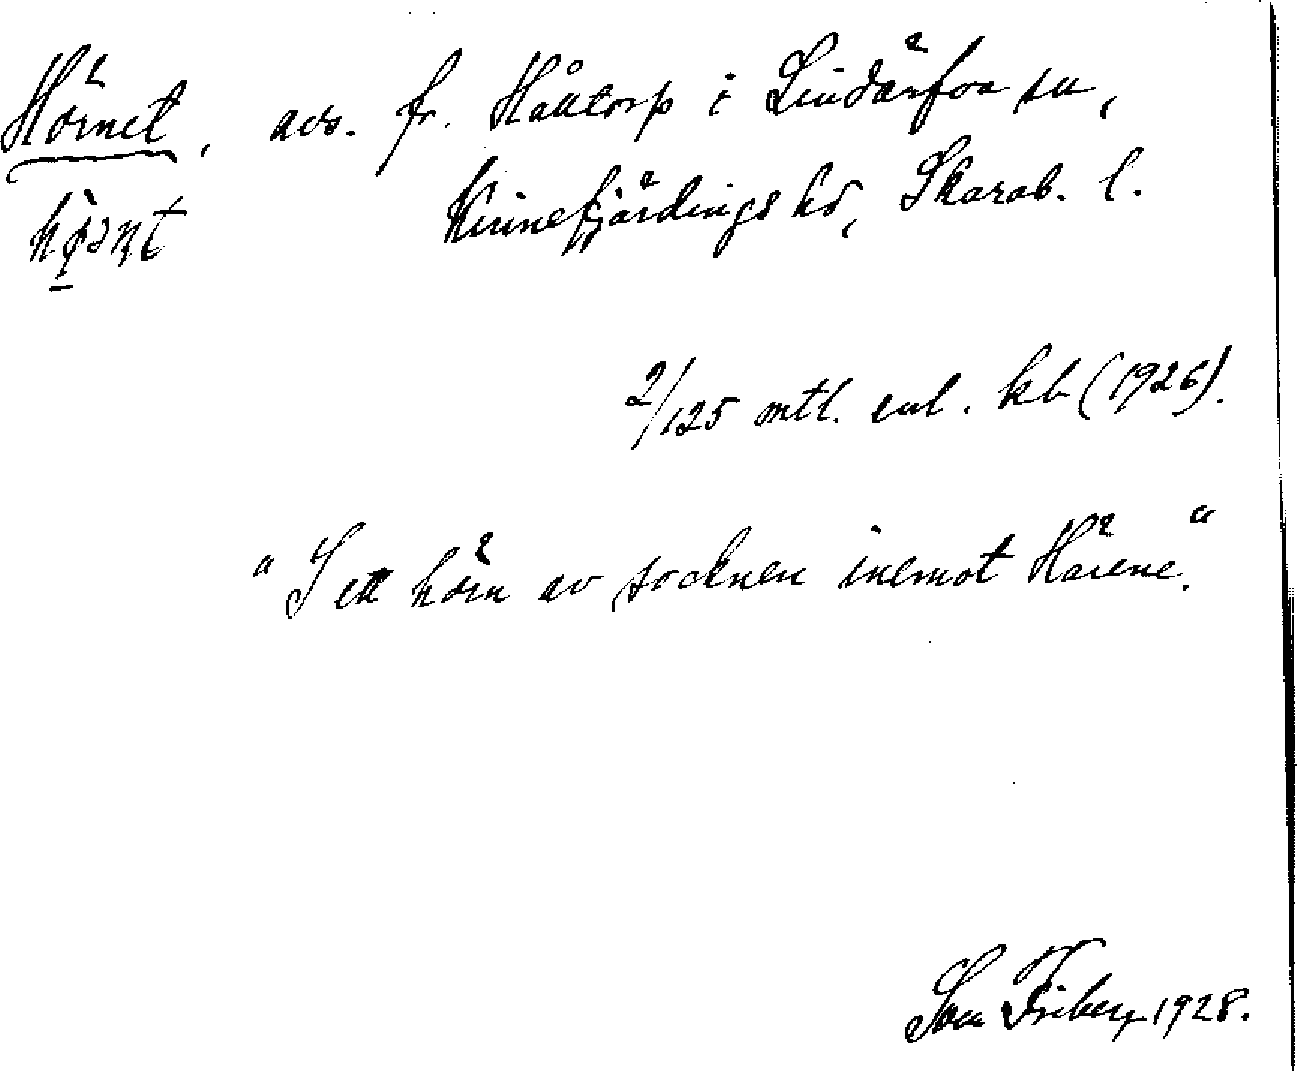 Hörnet, avs. fr. Hålltorp i Lindärfva sn,
Kinnefjärdings hd, Skarab. l.
2/125 mtl. enl. kb (1926).
"I ett hörn av socknen inemot Härene."
Sven Friberg 1928.